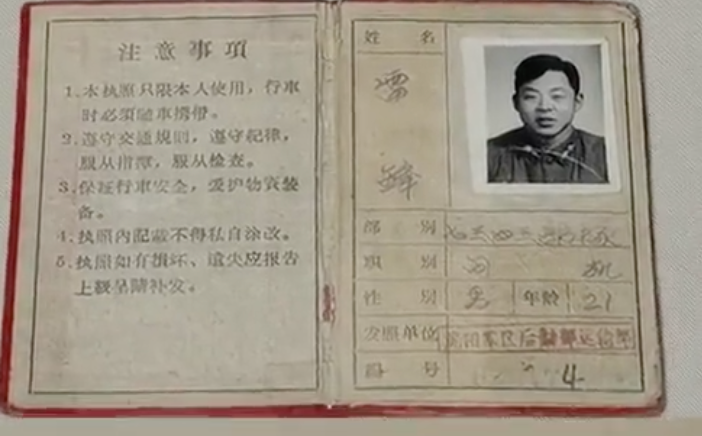 注意事項
1.本执照只限本人使用，行車
时必须随車携带。
2.遵守交通規則，遵守紀律，
服从指揮，服从检查。
3.保証行車安全，爱护物資裝
备。
4.执照內記載不得私自涂改。
5.执照如有損坏、遺失应报告
上級呈請补发。
姓 名
雷
鋒
部 別
职 別 司 机
性 別 男 年龄 21
发照单位
号 4